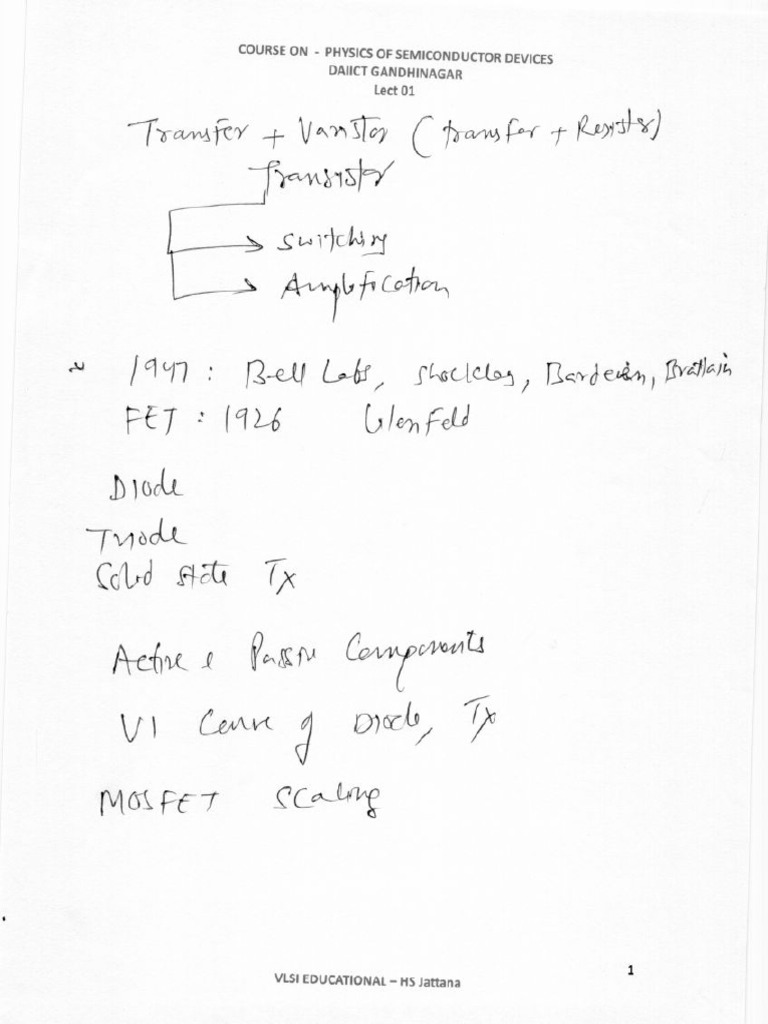 COURSE ON - PHYSICS OF SEMICONDUCTOR DEVICES
DAIICT GANDHINAGAR
Lect 01
Transfer + Varistor (transfer + Resistor)
Transistor
Switching
Amplification
~ 1947 : Bell Labs, Shockley, Bardeein, Brattain
FET : 1926
Diode
Triode
Solid state Tx
Active & Passive Components
VI Curve of Diode, Tx
MOSFET Scaling
VLSI EDUCATIONAL – HS Jattana
1